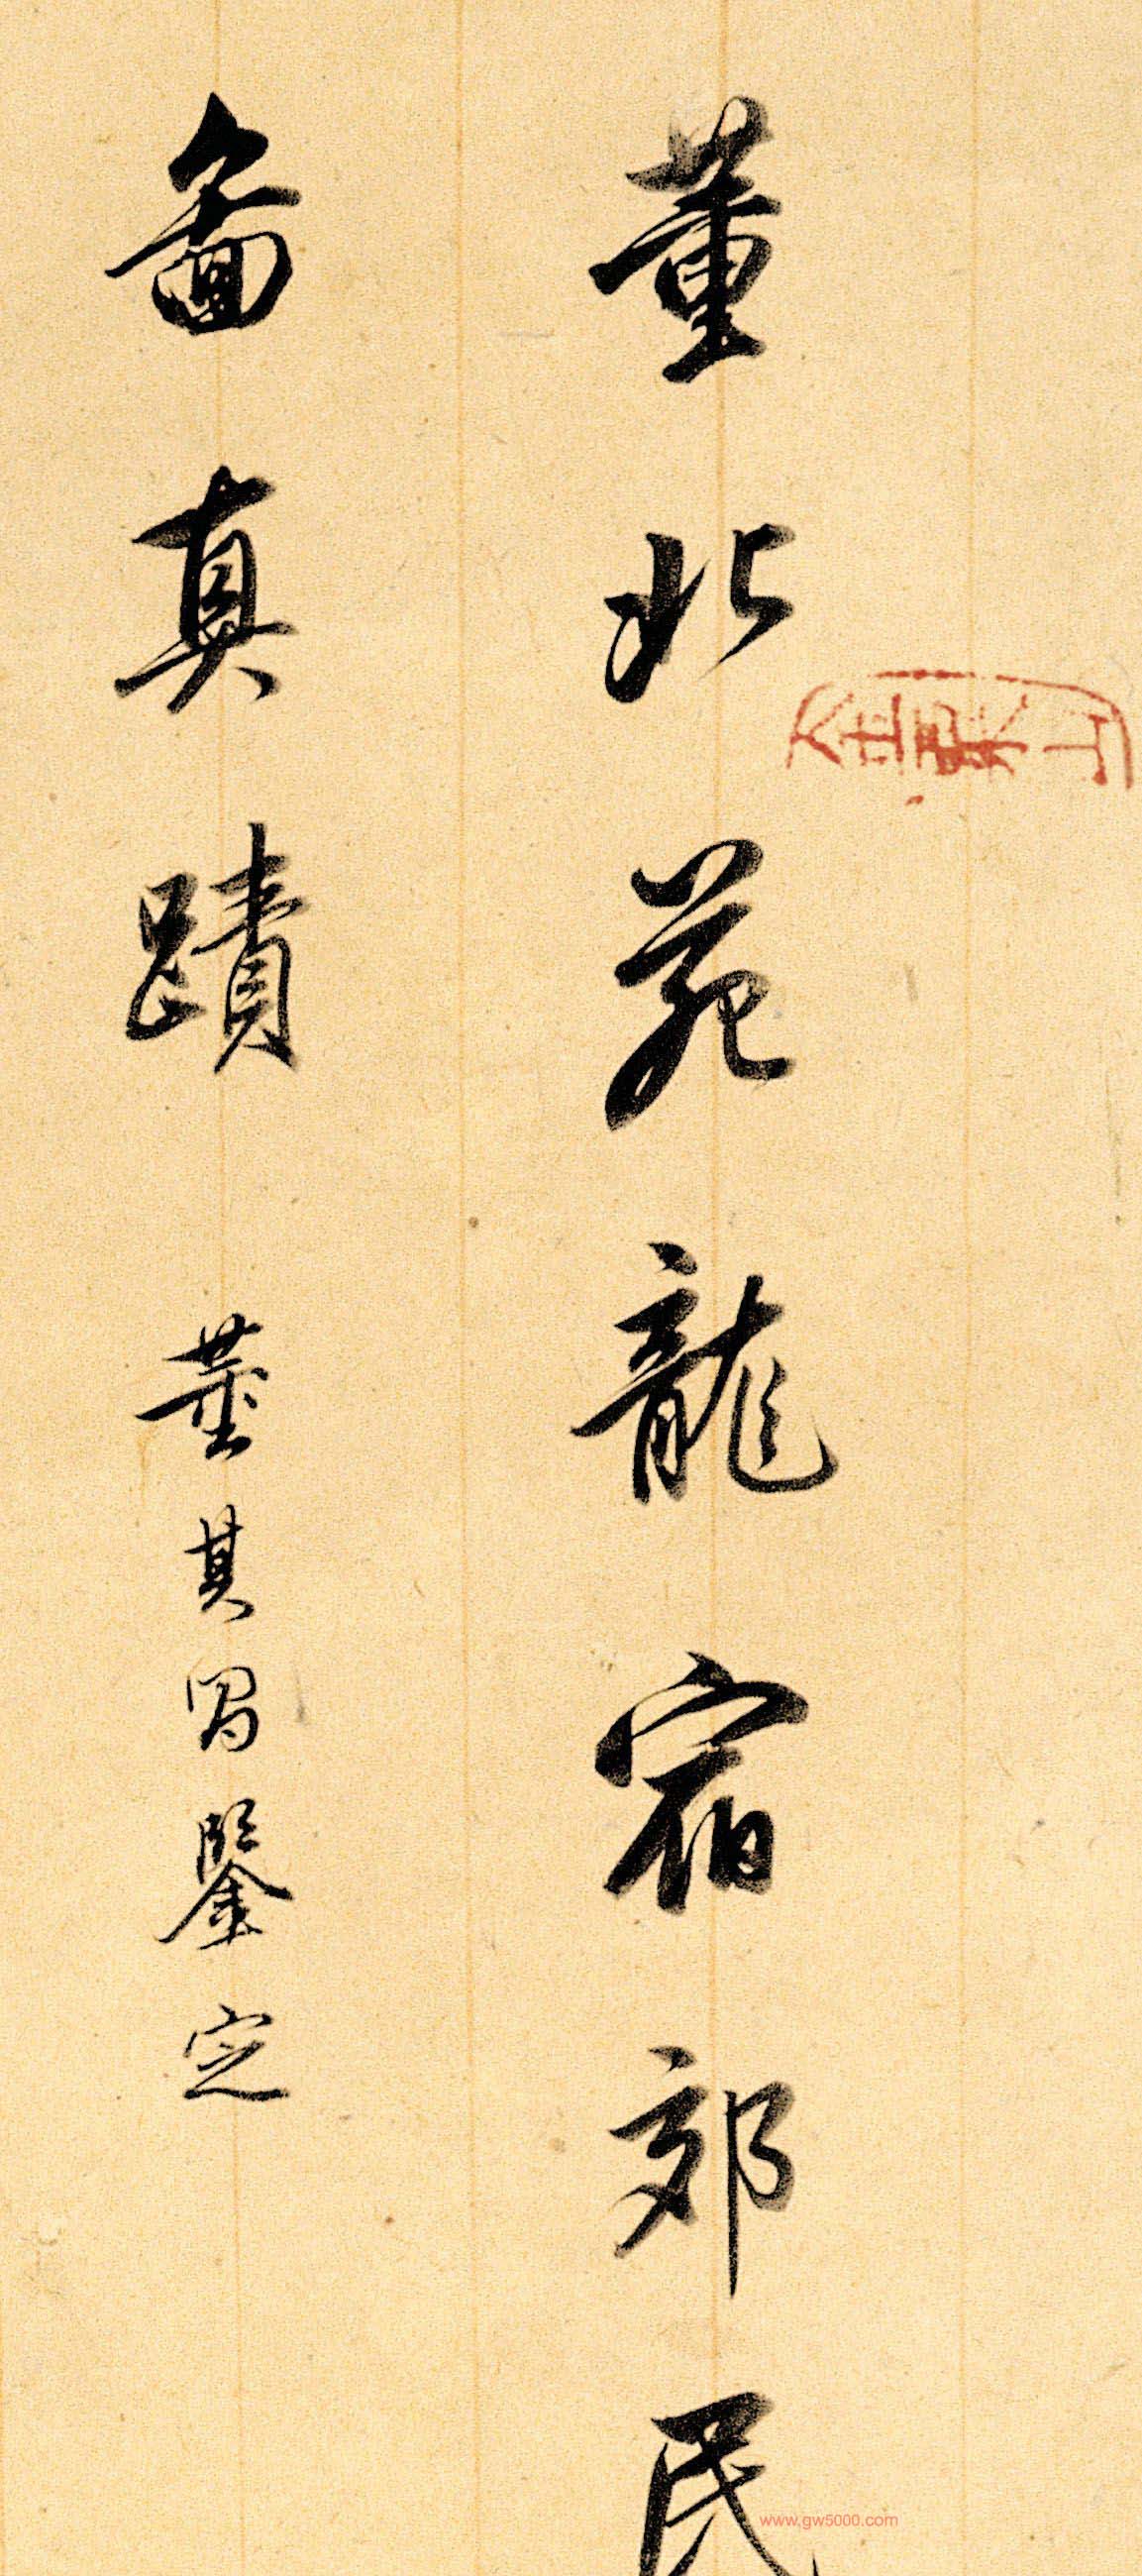 董北苑龍宿郊民
啚真蹟 董其昌鑒定
www.gw5000.com